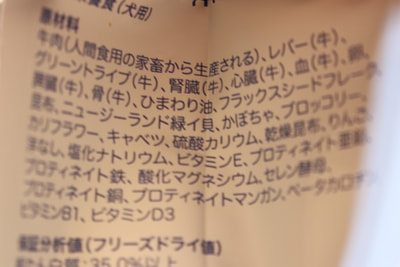 養食(犬用)
原材料
牛肉(人間食用の家畜から生産される)、レバー(牛)、
グリーントライプ(牛)、腎臓(牛)、心臓(牛)、血(牛)、
脾臓(牛)、骨(牛)、ひまわり油、フラックスシードフレーク、
昆布、ニュージーランド緑イ貝、かぼちゃ、ブロッコリー、
カリフラワー、キャベツ、硫酸カリウム、乾燥昆布、りんご、
洋なし、塩化ナトリウム、ビタミンE、プロティネイト亜鉛、
プロティネイト鉄、酸化マグネシウム、セレン酵母、
プロティネイト銅、プロティネイトマンガン、ベータカロテン、
ビタミンB1、ビタミンD3
保証分析値(フリーズドライ値)
たん白質:35.0%以上